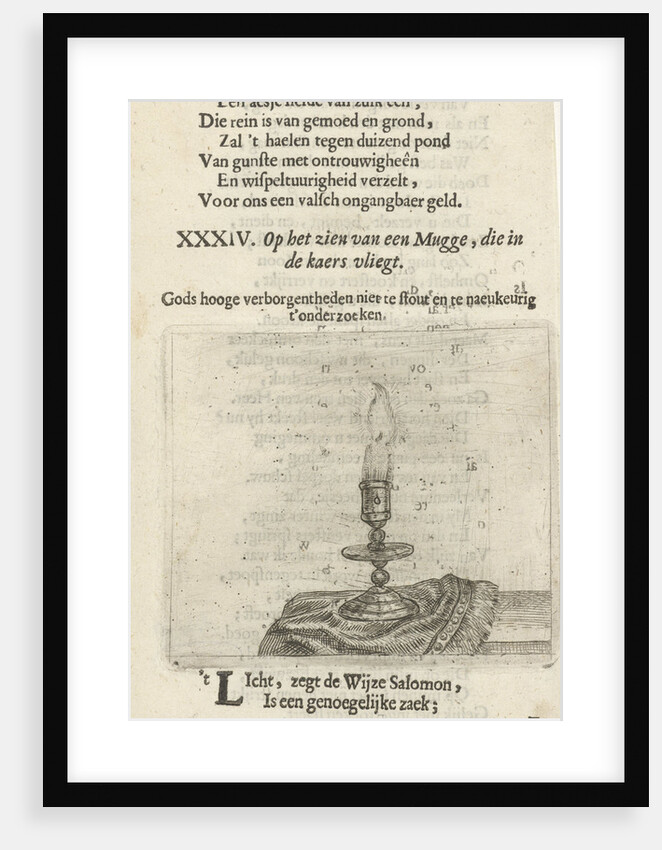 Een aesje liefde van zulk een,
Die rein is van gemoed en grond,
Zal 't haelen tegen duizend pond
Van gunſte met ontrouwigheên
En wiſpeltuurigheid verzelt,
Voor ons een valſch ongangbaer geld.
XXXIV. Op het zien van een Mugge, die in
de kaers vliegt.
Gods hooge verborgentheden niet te ſtout en te naeukeurig
t'onderzoeken.
't LIcht, zegt de Wijze Salomon,
Is een genoegelijke zaek;